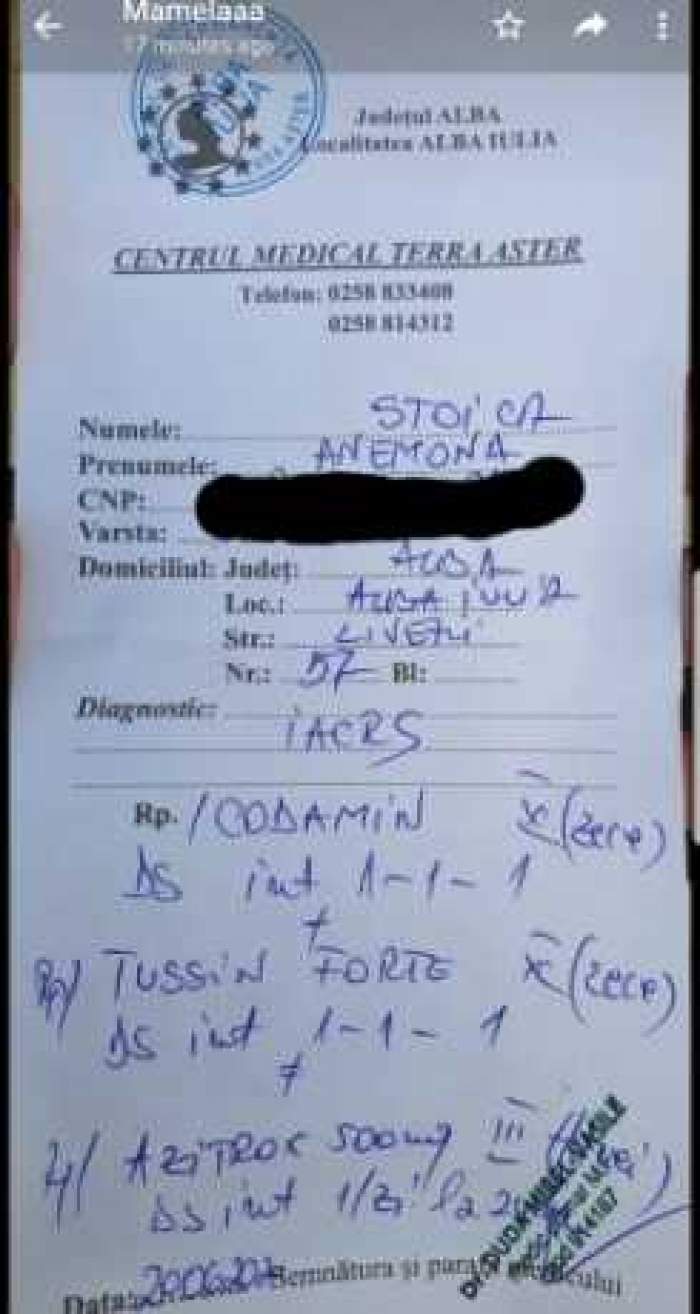 Mamelaaa
17 minutes ago
Județul ALBA
Localitatea ALBA IULIA
CENTRUL MEDICAL TERRA ASTER
Telefon: 0258 833408
0258 814312
Numele: STOICA
Prenumele: ANEMONA
CNP:
Varsta:
Domiciliul: Județ: ALBA
Loc.: ALBA IULIA
Str.: LIVEZII
Nr.: 57 Bl:
Diagnostic:
IACRS
Rp. / CODAMIN X (zece)
DS int 1-1-1
+
Rp/ TUSSIN FORTE X (zece)
DS int 1-1-1
+
AZITROX 500mg III (trei)
DS int 1/zi la
Data: Semnătura și parafa medicului